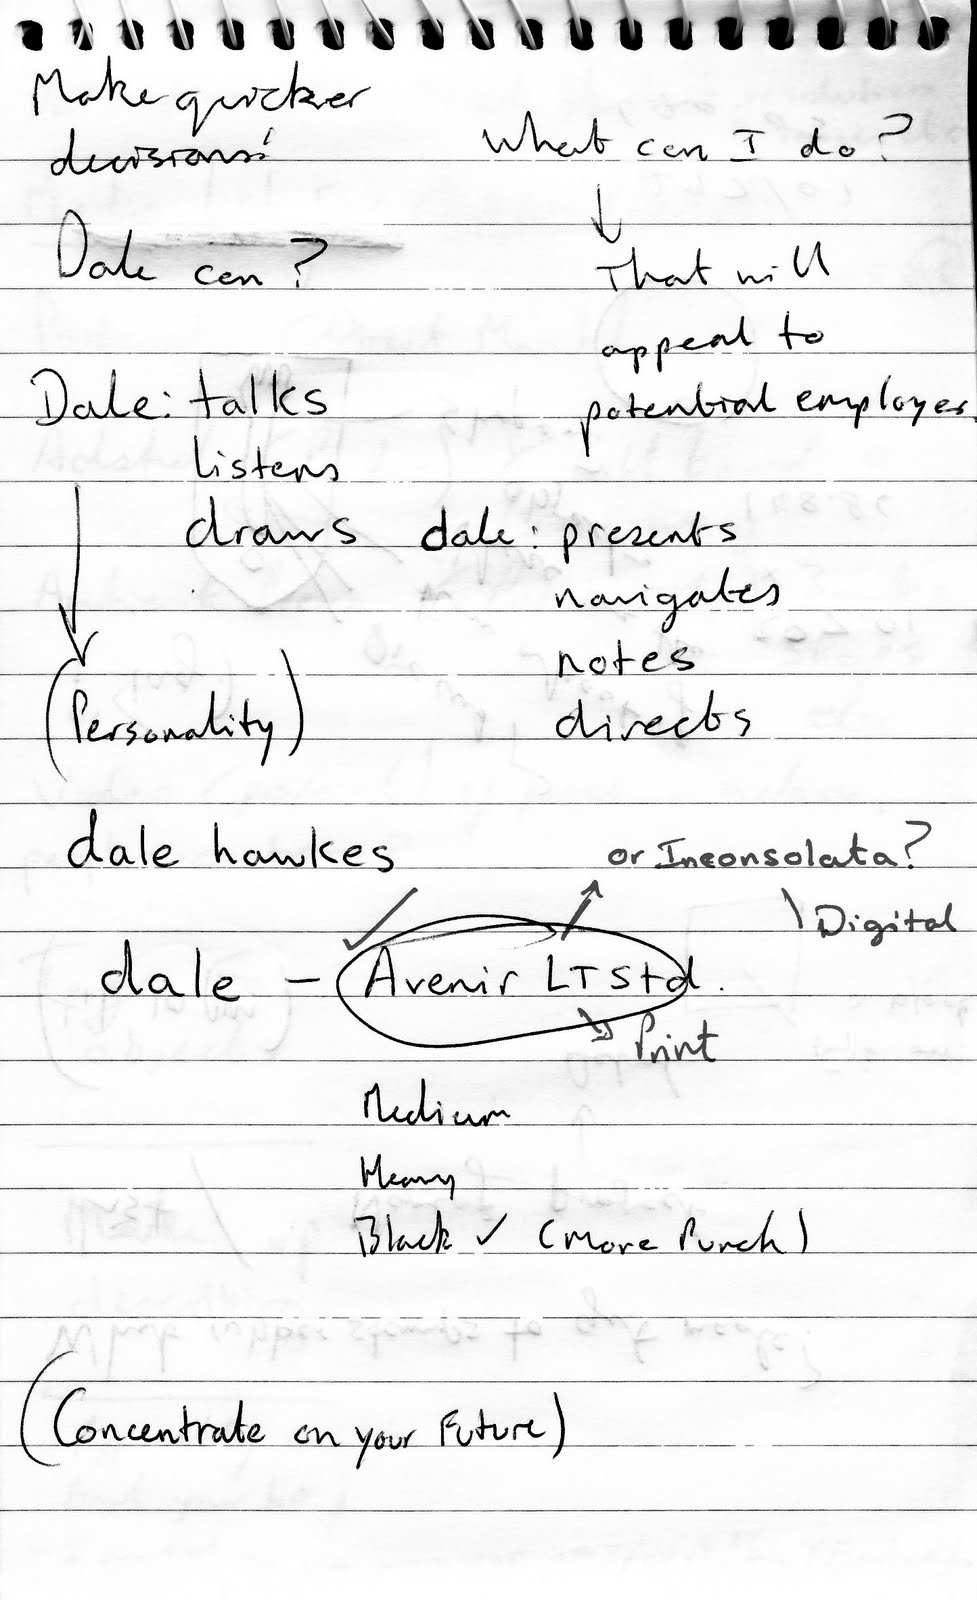 Make quicker
decisions!
What can I do?
Dale can?
That will
appeal to
potential employer.
Dale: talks
listens
draws
dale: presents
navigates
notes
directs
(Personality)
dale hawkes
or Inconsolata?
Digital
dale - Avenir LT Std.
Print
Medium
Heavy
Black ✓ (More Punch)
(Concentrate on your Future)